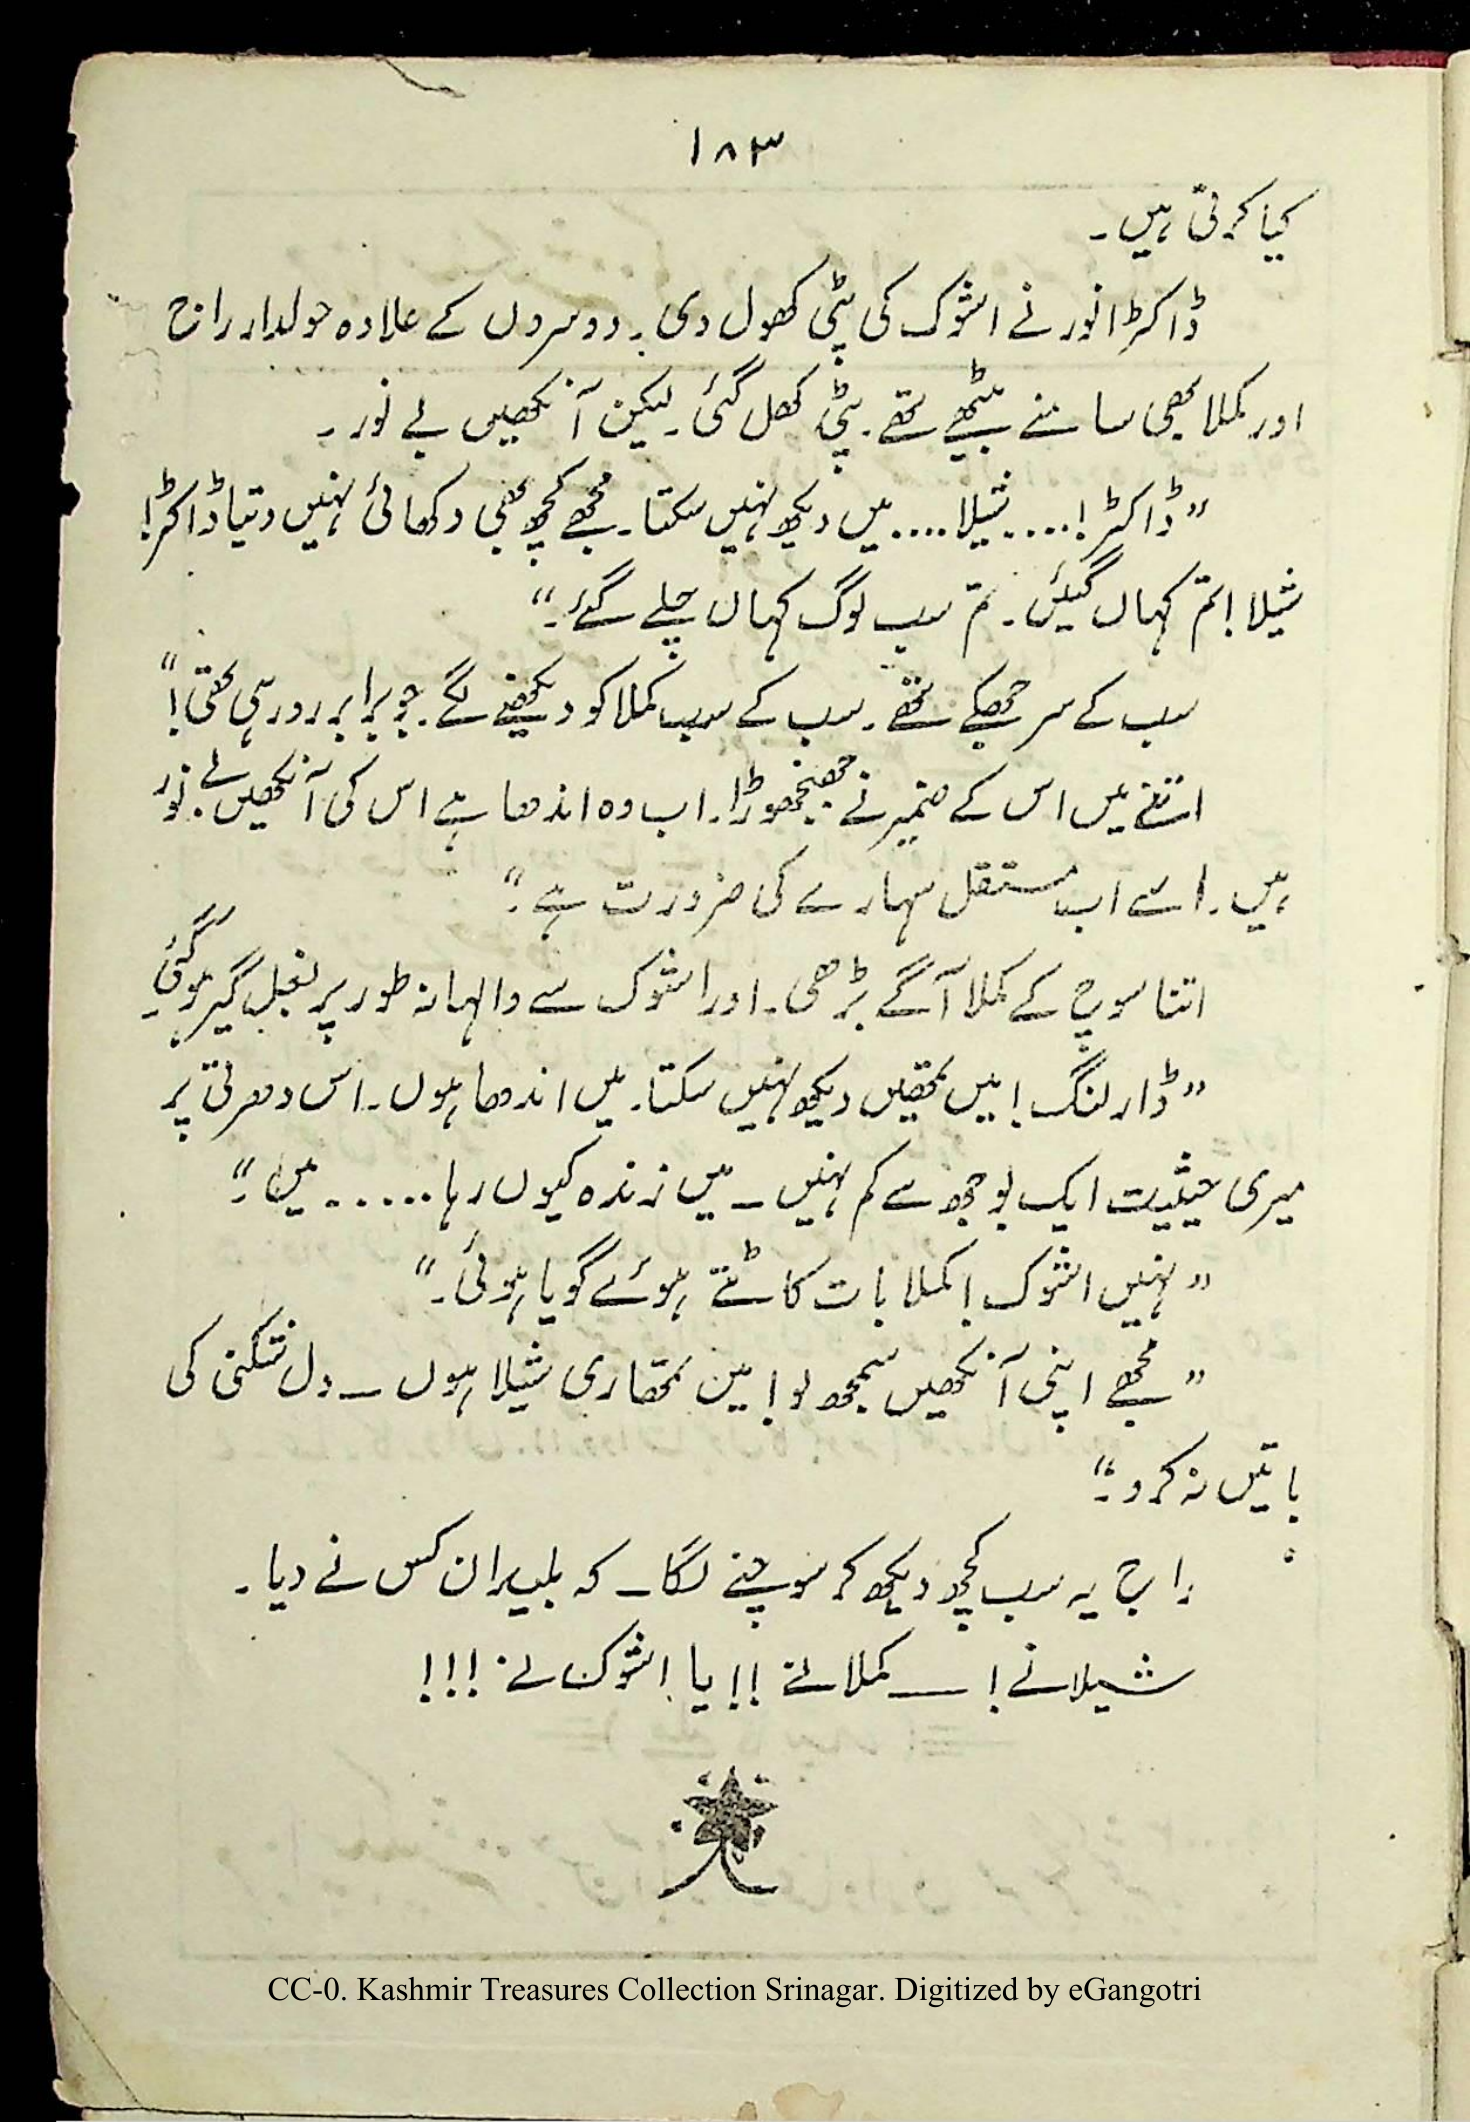 ۱۸۳
کیا کرتی ہیں۔
ڈاکٹر انور نے اشوک کی پٹی کھول دی۔ دوسروں کے علاوہ حولدار راج
اور کملا بھی سامنے بیٹھے تھے۔ پٹی کھل گئی۔ لیکن آنکھیں بے نور۔
”ڈاکٹر!.... شیلا.... میں دیکھ نہیں سکتا۔ مجھے کچھ بھی دکھائی نہیں دیتا ڈاکٹر!
شیلا! تم کہاں گئیں۔ تم سب لوگ کہاں چلے گئے۔“
سب کے سر جھکے تھے۔ سب کے سب کملا کو دیکھنے لگے۔ جو برابر رو رہی تھی!“
اتنے میں اس کے ضمیر نے جھنجھوڑا۔ اب وہ اندھا ہے اس کی آنکھیں بے نور
ہیں۔ اسے اب مستقل سہارے کی ضرورت ہے۔“
اتنا سوچ کے کملا آگے بڑھی۔ اور اشوک سے والہانہ طور پر بغل گیر ہو گئی۔
”ڈارلنگ! میں تمھیں دیکھ نہیں سکتا۔ میں اندھا ہوں۔ اس دھرتی پر
میری حیثیت ایک بوجھ سے کم نہیں ۔ میں زندہ کیوں رہا...... میں۔“
”نہیں اشوک! کملا بات کاٹتے ہوئے گویا ہوئی۔“
”مجھے اپنی آنکھیں سمجھ لو! میں تمھاری شیلا ہوں ۔ دل شکنی کی
باتیں نہ کرو۔“
راج یہ سب کچھ دیکھ کر سوچنے لگا۔ کہ بلیدان کس نے دیا۔
شیلا نے! ـــ کملا نے !! یا اشوک نے !!!
CC-0. Kashmir Treasures Collection Srinagar. Digitized by eGangotri